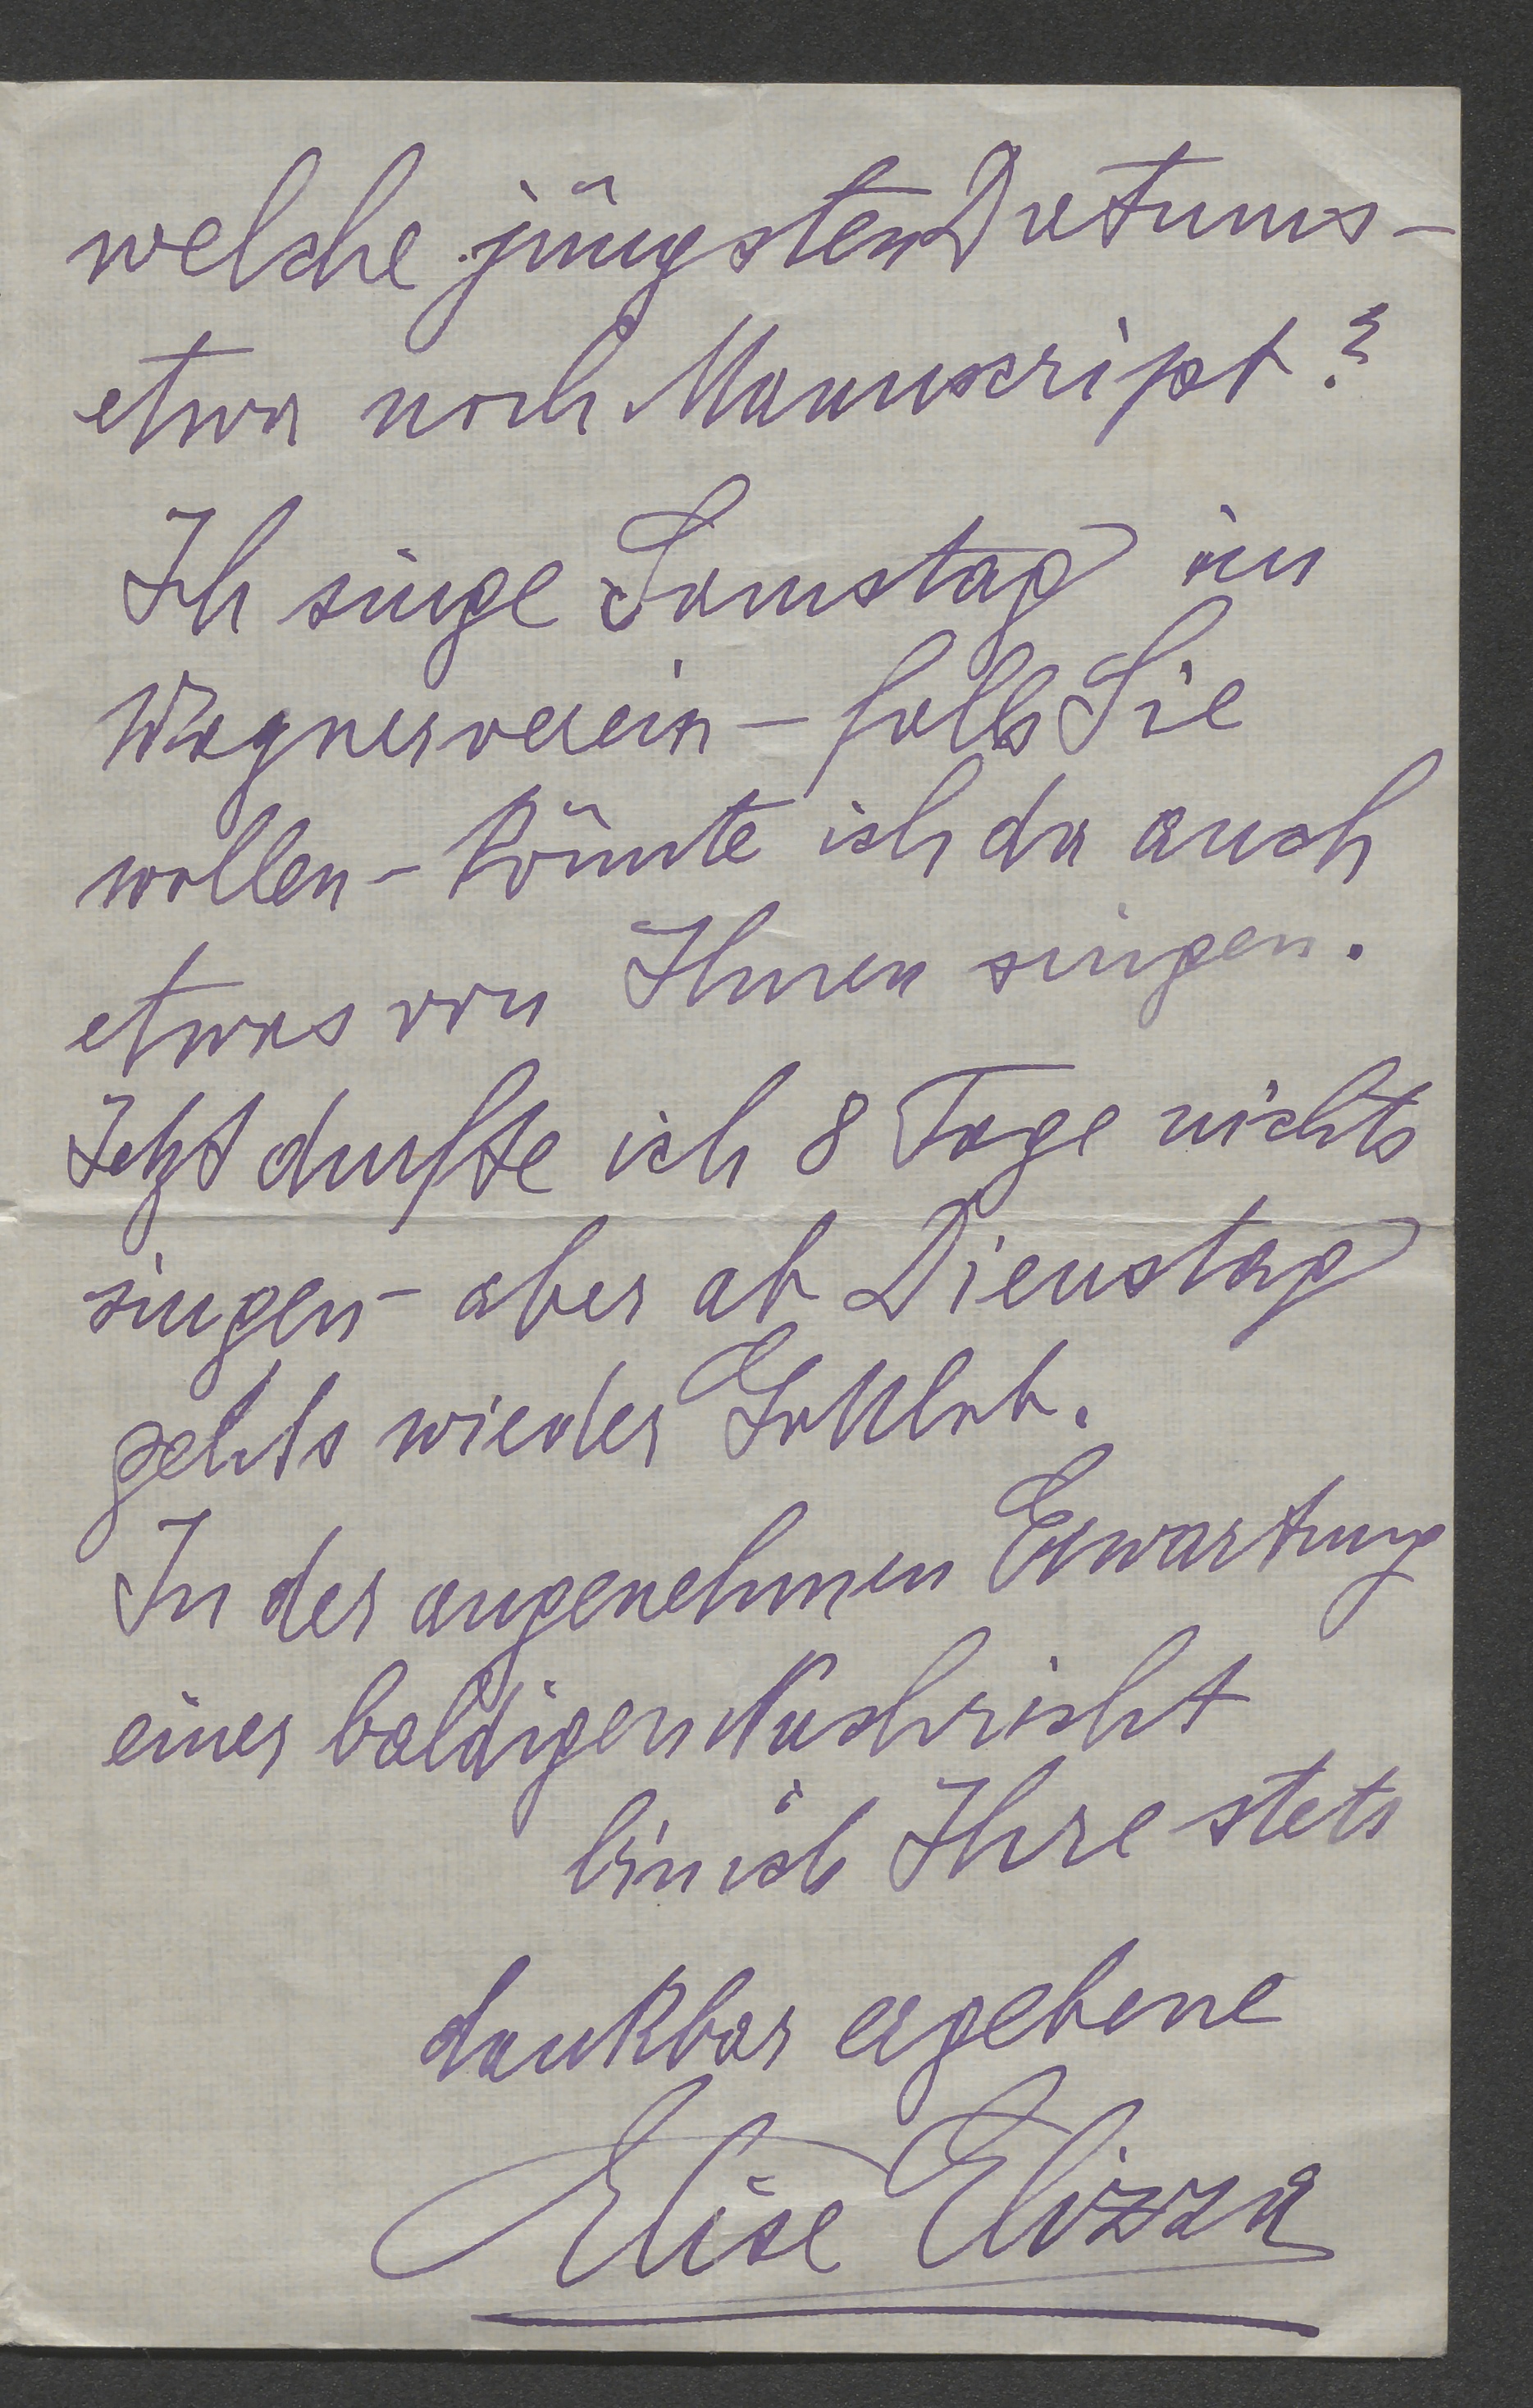 welche jüngsten Datums –
etwa noch Manuskript?
Ich singe Samstag im
Wagnerverein – falls Sie
wollen – könnte ich da auch
etwas von Ihnen singen.
Jetzt durfte ich 8 Tage nichts
singen – aber ab Dienstag
gehts wieder Gottlob.
In der angenehmen Erwartung
einer baldigen Nachricht
bin ich Ihre stets
dankbar ergebene
Elise Elizza